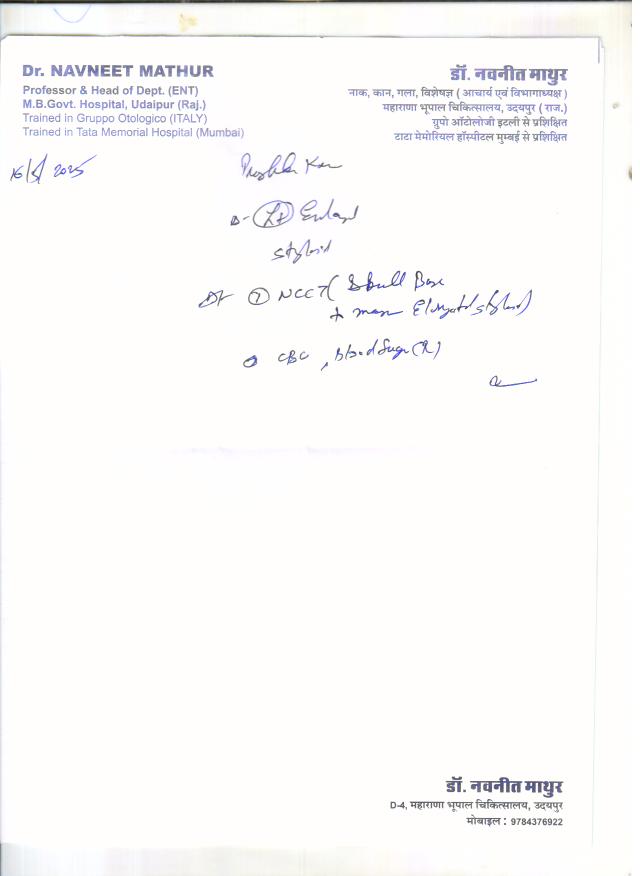 Dr. NAVNEET MATHUR
Professor & Head of Dept. (ENT)
M.B.Govt. Hospital, Udaipur (Raj.)
Trained in Gruppo Otologico (ITALY)
Trained in Tata Memorial Hospital (Mumbai)
डॉ. नवनीत माथुर
नाक, कान, गला, विशेषज्ञ ( आचार्य एवं विभागाध्यक्ष )
महाराणा भूपाल चिकित्सालय, उदयपुर ( राज.)
ग्रुपो ऑटोलोजी इटली से प्रशिक्षित
टाटा मेमोरियल हॉस्पीटल मुम्बई से प्रशिक्षित
2025
Styloid
① NCCT ( Skull Base
Elongated styloid)
CBC, Blood Sugar (R)
डॉ. नवनीत माथुर
D-4, महाराणा भूपाल चिकित्सालय, उदयपुर
मोबाइल : 9784376922